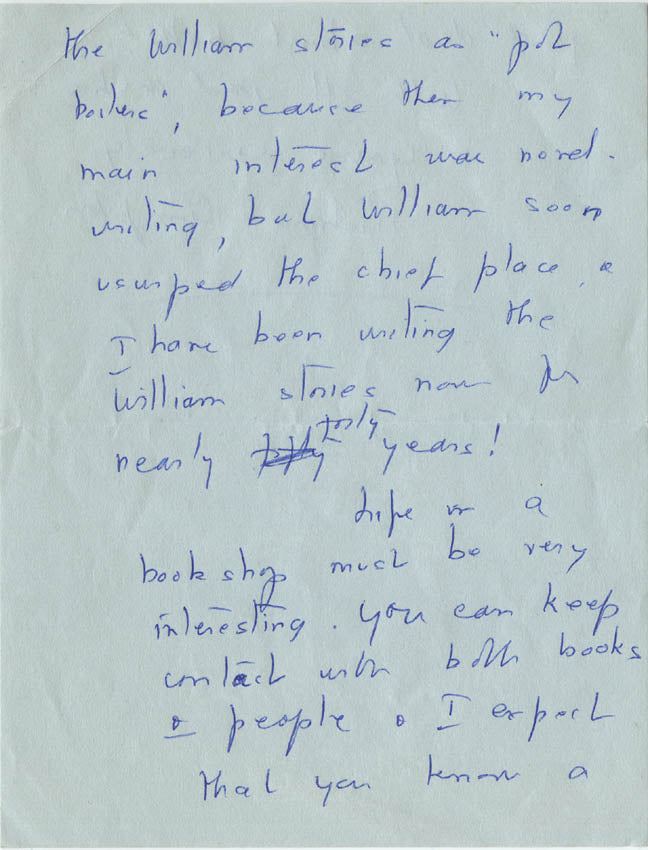 the William stories as "pot
boilers", because then my
main interest was novel-
writing, but William soon
usurped the chief place, &
I have been writing the
William stories now for
nearly forty years!
Life in a
book shop must be very
interesting. You can keep
contact with both books
& people & I expect
that you know a